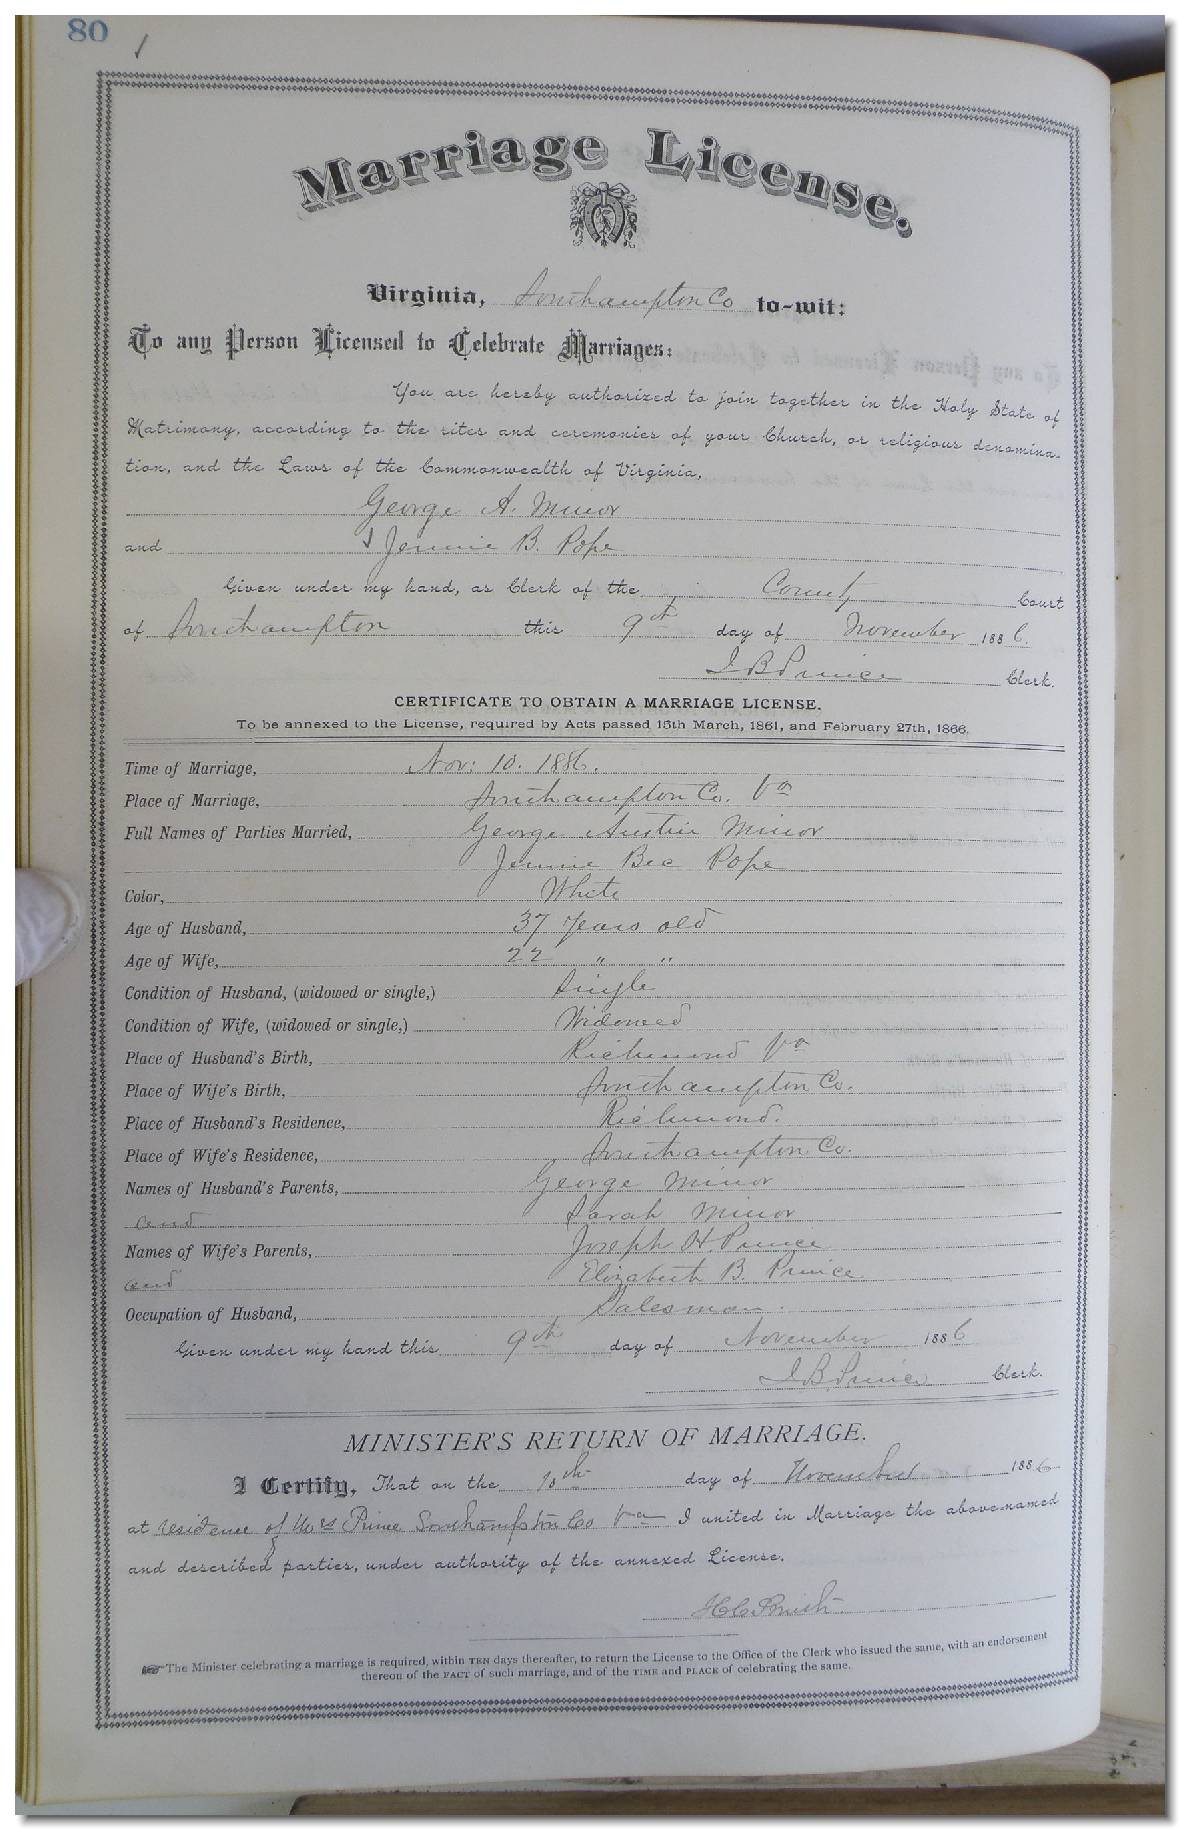 80
Marriage License.
Virginia, Southampton Co to-wit:
To any Person Licensed to Celebrate Marriages:
You are hereby authorized to join together in the Holy State of
Matrimony, according to the rites and ceremonies of your Church, or religious denomina-
tion, and the Laws of the Commonwealth of Virginia,
George A. Minor
and Jennie B. Pope
Given under my hand, as Clerk of the County Court
of Southampton this 9th day of November 1886.
J B Prince Clerk.
CERTIFICATE TO OBTAIN A MARRIAGE LICENSE.
To be annexed to the License, required by Acts passed 15th March, 1861, and February 27th, 1866.
Time of Marriage, Nov: 10. 1886.
Place of Marriage, Southampton Co. Va
Full Names of Parties Married, George Austin Minor
Jennie Bee Pope
Color, White
Age of Husband, 37 Years old
Age of Wife, 22 " "
Condition of Husband, (widowed or single,) Single
Condition of Wife, (widowed or single,) Widowed
Place of Husband's Birth, Richmond Va
Place of Wife's Birth, Southampton Co.
Place of Husband's Residence, Richmond.
Place of Wife's Residence, Southampton Co.
Names of Husband's Parents, George Minor
and Sarah Minor
Names of Wife's Parents, Joseph H. Prince
and Elizabeth B. Prince
Occupation of Husband, Salesman.
Given under my hand this 9th day of November 1886
J. B. Prince Clerk.
MINISTER'S RETURN OF MARRIAGE.
I Certify, That on the 10th day of November 1886
at residence of Mrs Prince Southampton Co Va I united in Marriage the above-named
and described parties, under authority of the annexed License.
The Minister celebrating a marriage is required, within TEN days thereafter, to return the License to the Office of the Clerk who issued the same, with an endorsement
thereon of the FACT of such marriage, and of the TIME and PLACE of celebrating the same.